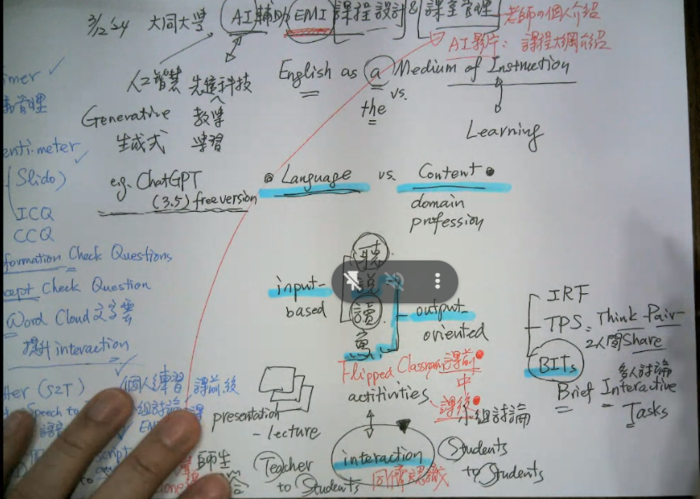 3/2 54 大同大學 AI輔助EMI課程設計&課室管理
老師の個人介紹
AI影片：課程大綱介紹
人工智慧 先進科技
English as a Medium of Instruction
vs.
the
Generative 教學
生成式 學習
Learning
e.g. ChatGPT
(3.5) free version
Language vs. Content
domain
profession
管理
Slido)
ICQ
CCQ
formation Check Questions
cept Check Question
Word Cloud 文字雲
提升 interaction
input-
based
聽
讀
output-
oriented
IRF
TPS: Think-Pair-
2人 Share
BITs 多人討論
Brief Interactive
Tasks
Flipped Classroom 課前
中
activities 課後
小組討論
presentation
-lecture
interaction
Teacher
to Students
師生
Students
to Students
個人練習 課前後
Speech to